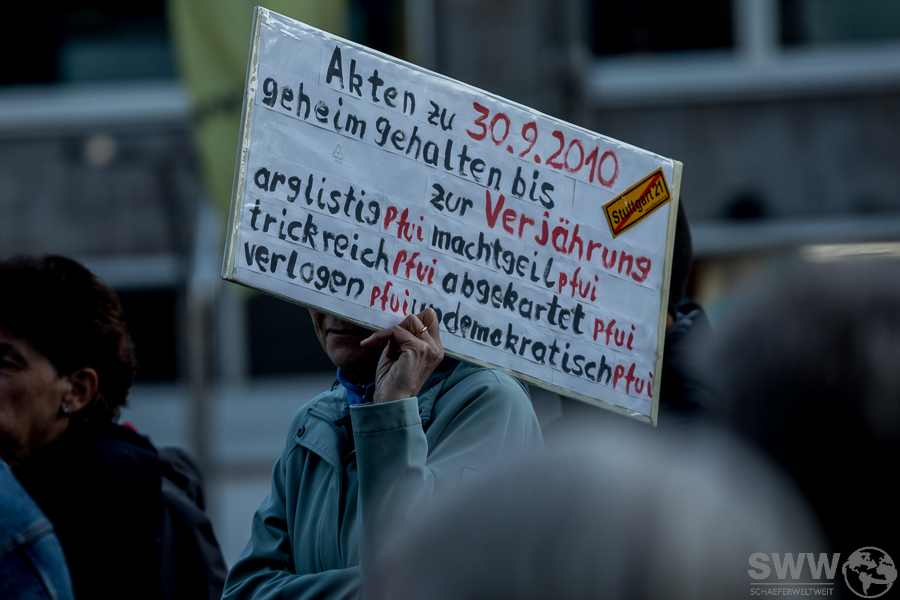 Akten zu 30.9.2010
geheim gehalten bis
zur Verjährung
Stuttgart 21
arglistig pfui machtgeil pfui
trickreich pfui abgekartet pfui
verlogen pfui undemokratisch pfui
SWW
SCHAEFERWELTWEIT